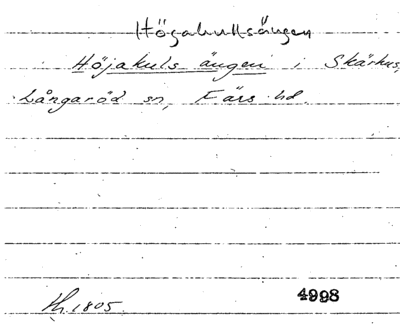 Högakullsängen
Höjakuls ängen i Skärhus,
Långaröd sn, Färs hd.
1805.
4998